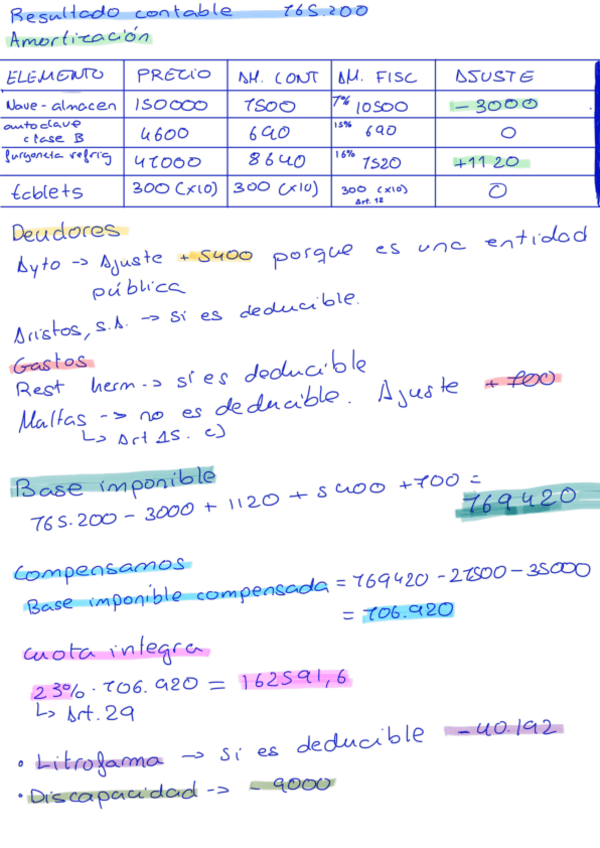 Resultado contable 765.200
Amortización
ELEMENTO PRECIO AM. CONT AM. FISC AJUSTE
Nave-almacen 150000 7500 7% 10500 -3000
autoclave clase B 4600 690 15% 690 0
furgoneta refrig 47000 8640 16% 7520 +1120
tablets 300 (x10) 300 (x10) 300 (x10) Art. 12 0
Deudores
Ayto -> Ajuste + 5400 porque es una entidad
pública
Aristos, S.A. -> si es deducible.
Gastos
Rest herm.-> sí es deducible
Multas --> no es deducible. Ajuste + 700
↳ Art 15. c)
Base imponible
765.200 - 3000 + 1120 + 5400 + 700 =
769420
Compensamos
Base imponible compensada = 769420 - 27500 - 35000
= 706.920
Cuota integra
23% · 706.920 = 162591,6
↳ Art. 29
• Litrofarma -> Si es deducible - 40.192
• Discapacidad -> - 9000